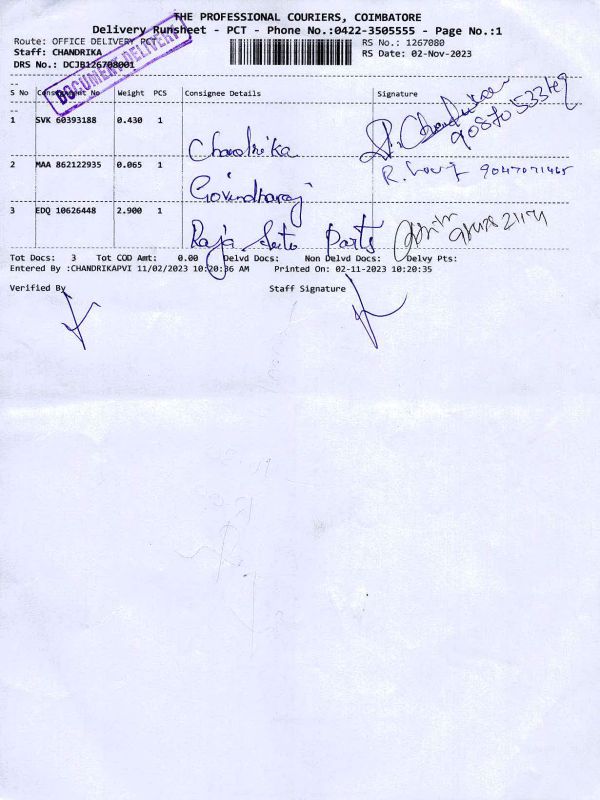 THE PROFESSIONAL COURIERS, COIMBATORE
Delivery Runsheet - PCT - Phone No.:0422-3505555 - Page No.:1
Route: OFFICE DELIVERY PCT RS No.: 1267080
Staff: CHANDRIKA RS Date: 02-Nov-2023
DRS No.: DCJB126708001
DOCUMENT DELIVERY
S No Consignment No Weight PCS Consignee Details Signature
1 SVK 60393188 0.430 1 Chandrika
2 MAA 862122935 0.065 1 Govindharaj 9047071465
3 EDQ 10626448 2.900 1 Raja Auto Parts
Tot Docs: 3 Tot COD Amt: 0.00 Delvd Docs: Non Delvd Docs: Delvy Pts:
Entered By :CHANDRIKAPVI 11/02/2023 10:20:36 AM Printed On: 02-11-2023 10:20:35
Verified By Staff Signature